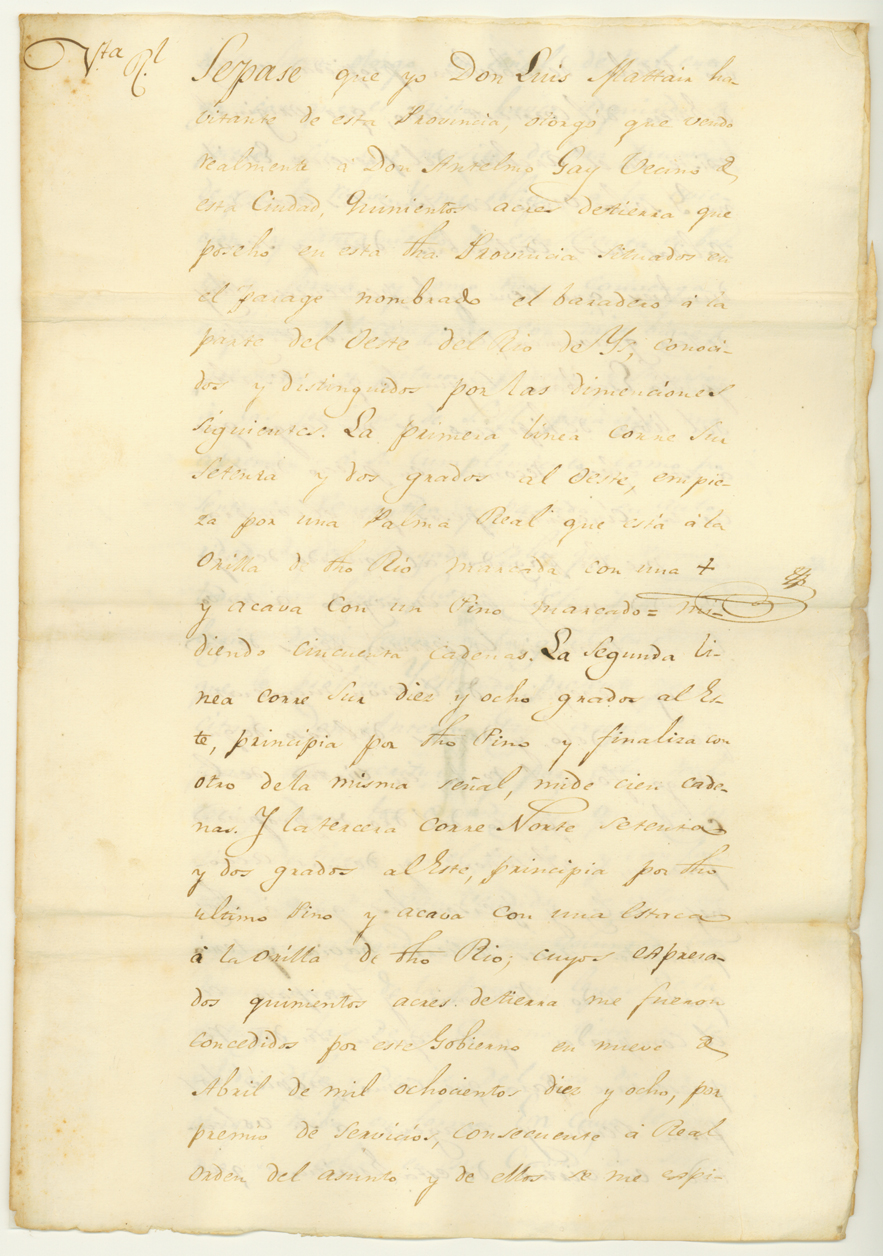 Vta Rl
Sepase que yo Don Luis Mattair ha-
vitante de esta Provincia, otorgo que vendo
realmente á Don Antelmo Gay Vecino de
esta Ciudad, Quinientos acres detierra que
poseho en esta dha Provincia situados en
el parage nombrado el baradero á la
parte del Oeste del Rio de Ys, conoci-
dos y distinguidos por las dimenciones
siguientes. La primera linea corre Sur
Setenta y dos grados al Oeste, empie-
za por una Palma Real que está á la
Orilla de dho Rio marcada con una +
y acava con un Pino marcado= mi-
diendo cincuenta cadenas. La segunda li-
nea corre Sur diez y ocho grados al Es-
te, principia por dho Pino y finaliza con
otro de la misma señal, mide cien cade-
nas. Y la tercera corre Norte setenta
y dos grados al Este, principia por dho
ultimo Pino y acava con una Estaca
á la Orilla de dho Rio; cuyos espresa-
dos quinientos acres detierra me fueron
concedidos por este Gobierno en nueve de
Abril de mil ochocientos diez y ocho, por
premio de servicios, consecuente á Real
Orden del asunto y de ellos se me espi-